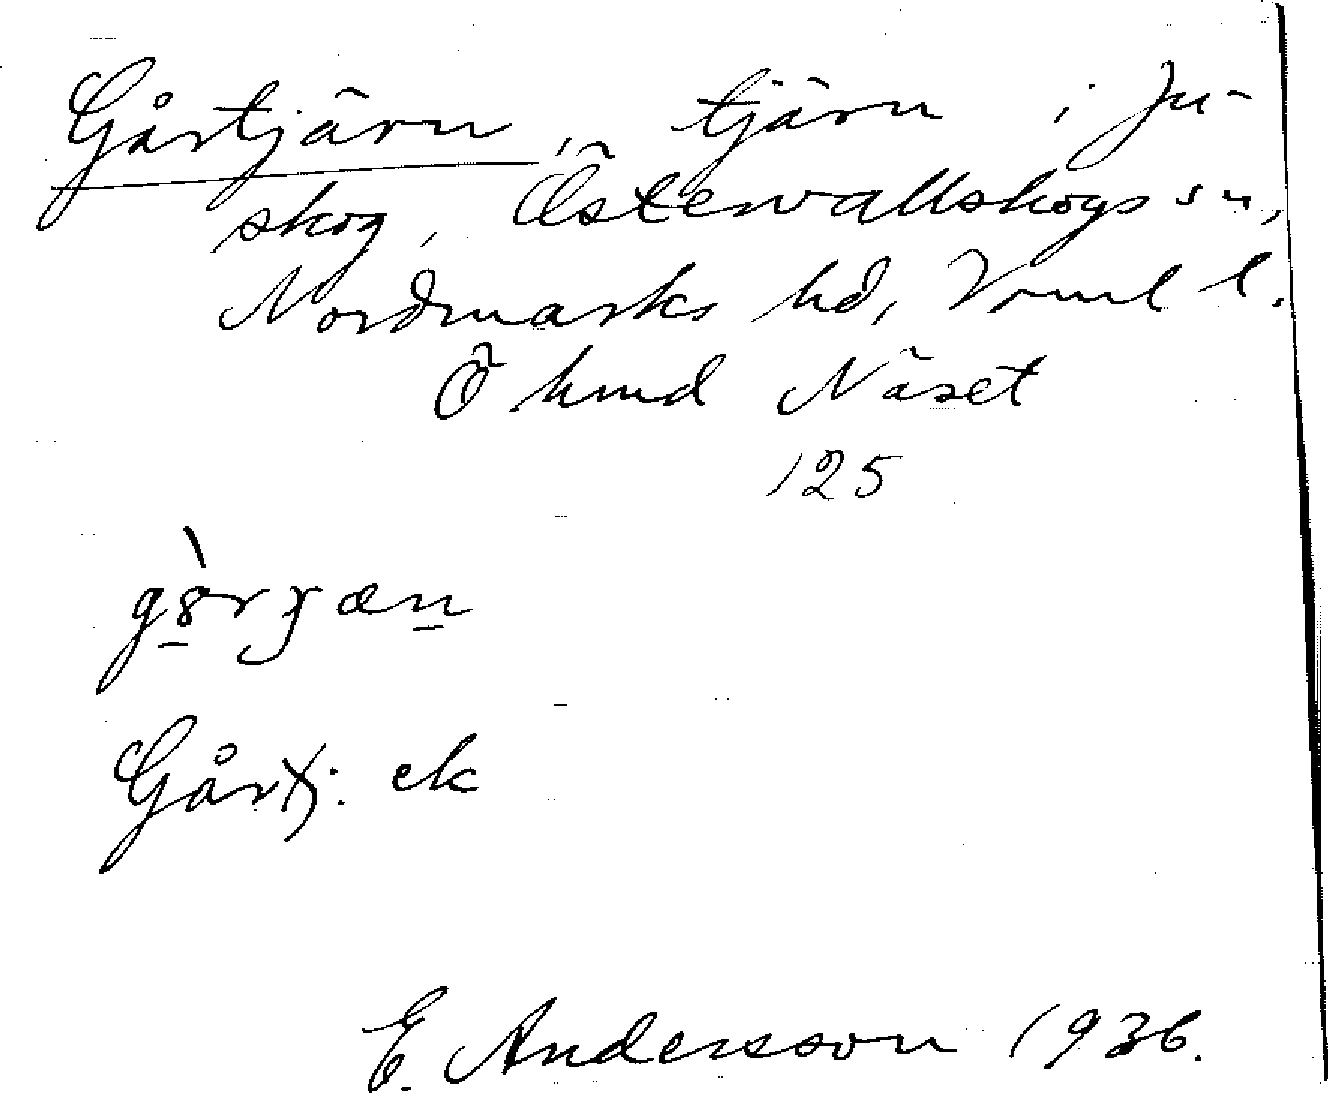 Gårtjärn, tjärn i Ju-
skog, Östervallskogs sn,
Nordmarks hd, Vrml l.
Ö hmd Näset
125
Gårtj: ek
E. Andersson 1936.